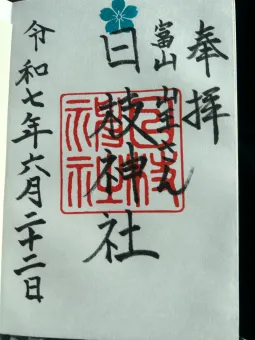 奉拝
富山 山王さん
日枝神社
令和七年六月二十二日
日枝神社